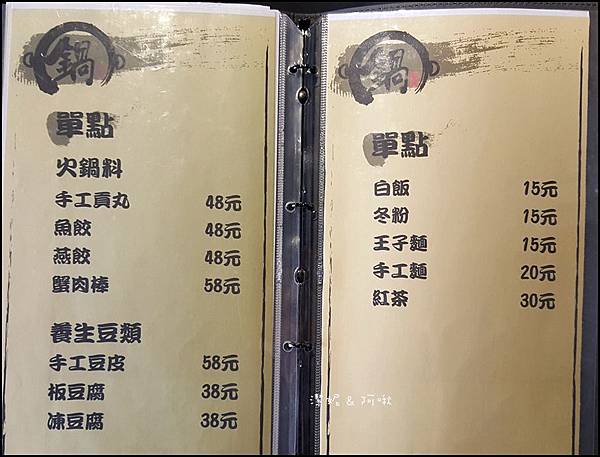 鍋
單點
火鍋料
手工貢丸 48元
魚餃 48元
燕餃 48元
蟹肉棒 58元
養生豆類
手工豆皮 58元
板豆腐 38元
凍豆腐 38元
鍋
單點
白飯 15元
冬粉 15元
王子麵 15元
手工麵 20元
紅茶 30元
潔妮 & 阿啾